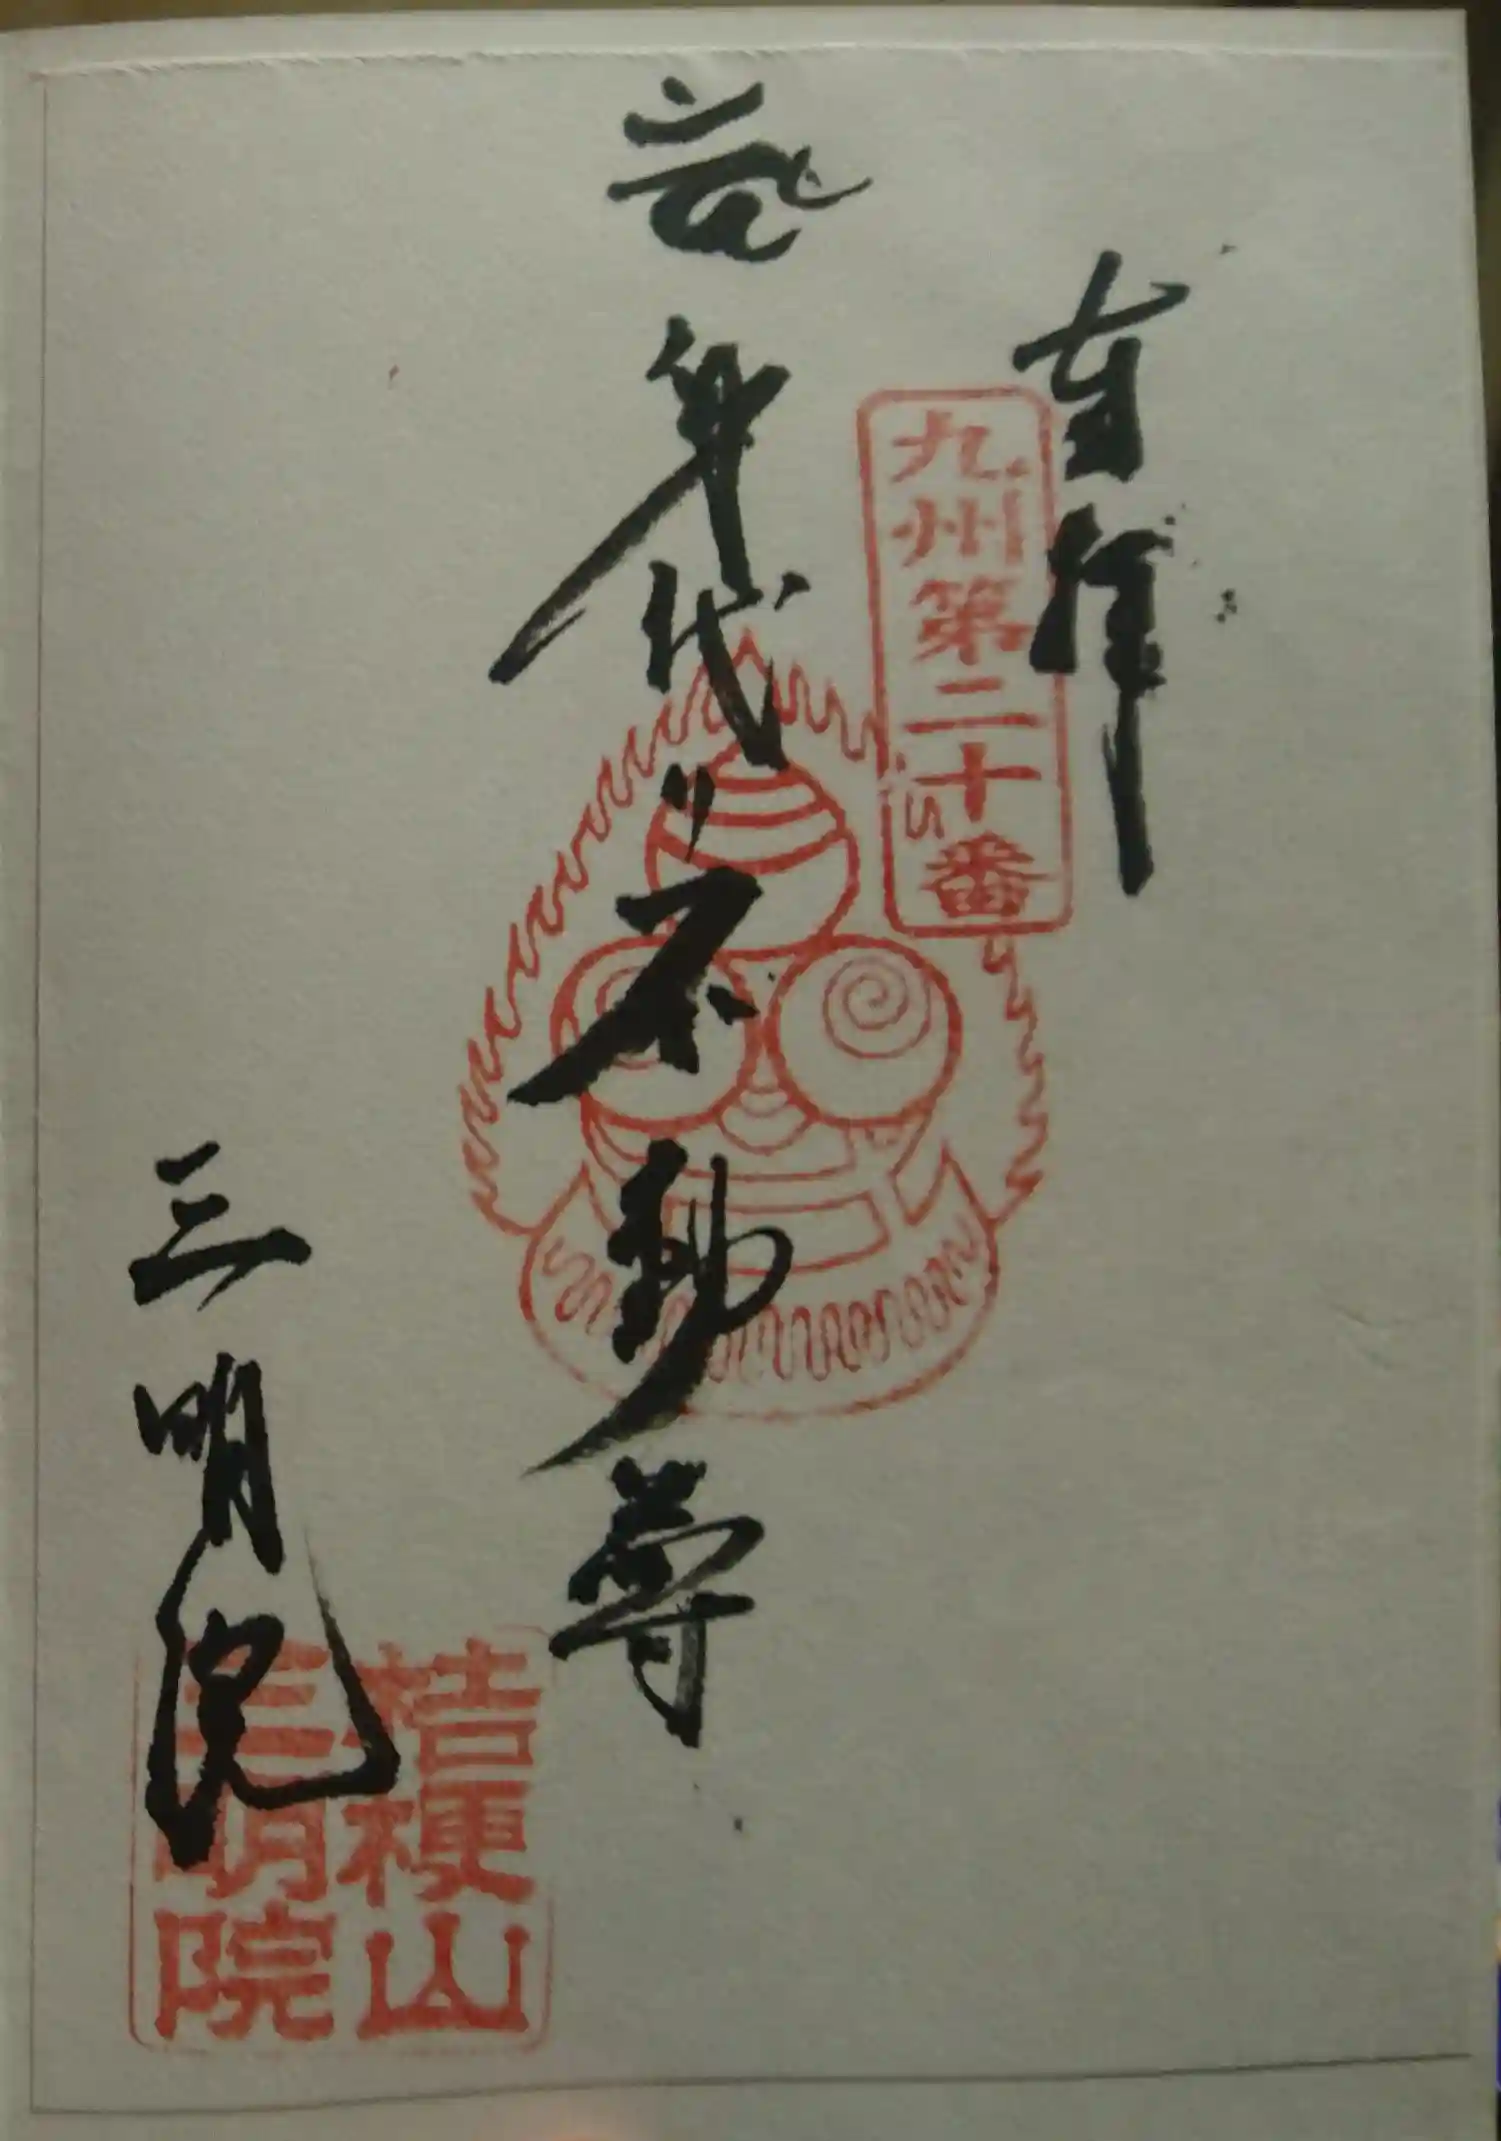 奉拝
九州第二十番
不動尊
三明院
桔梗山
三明院